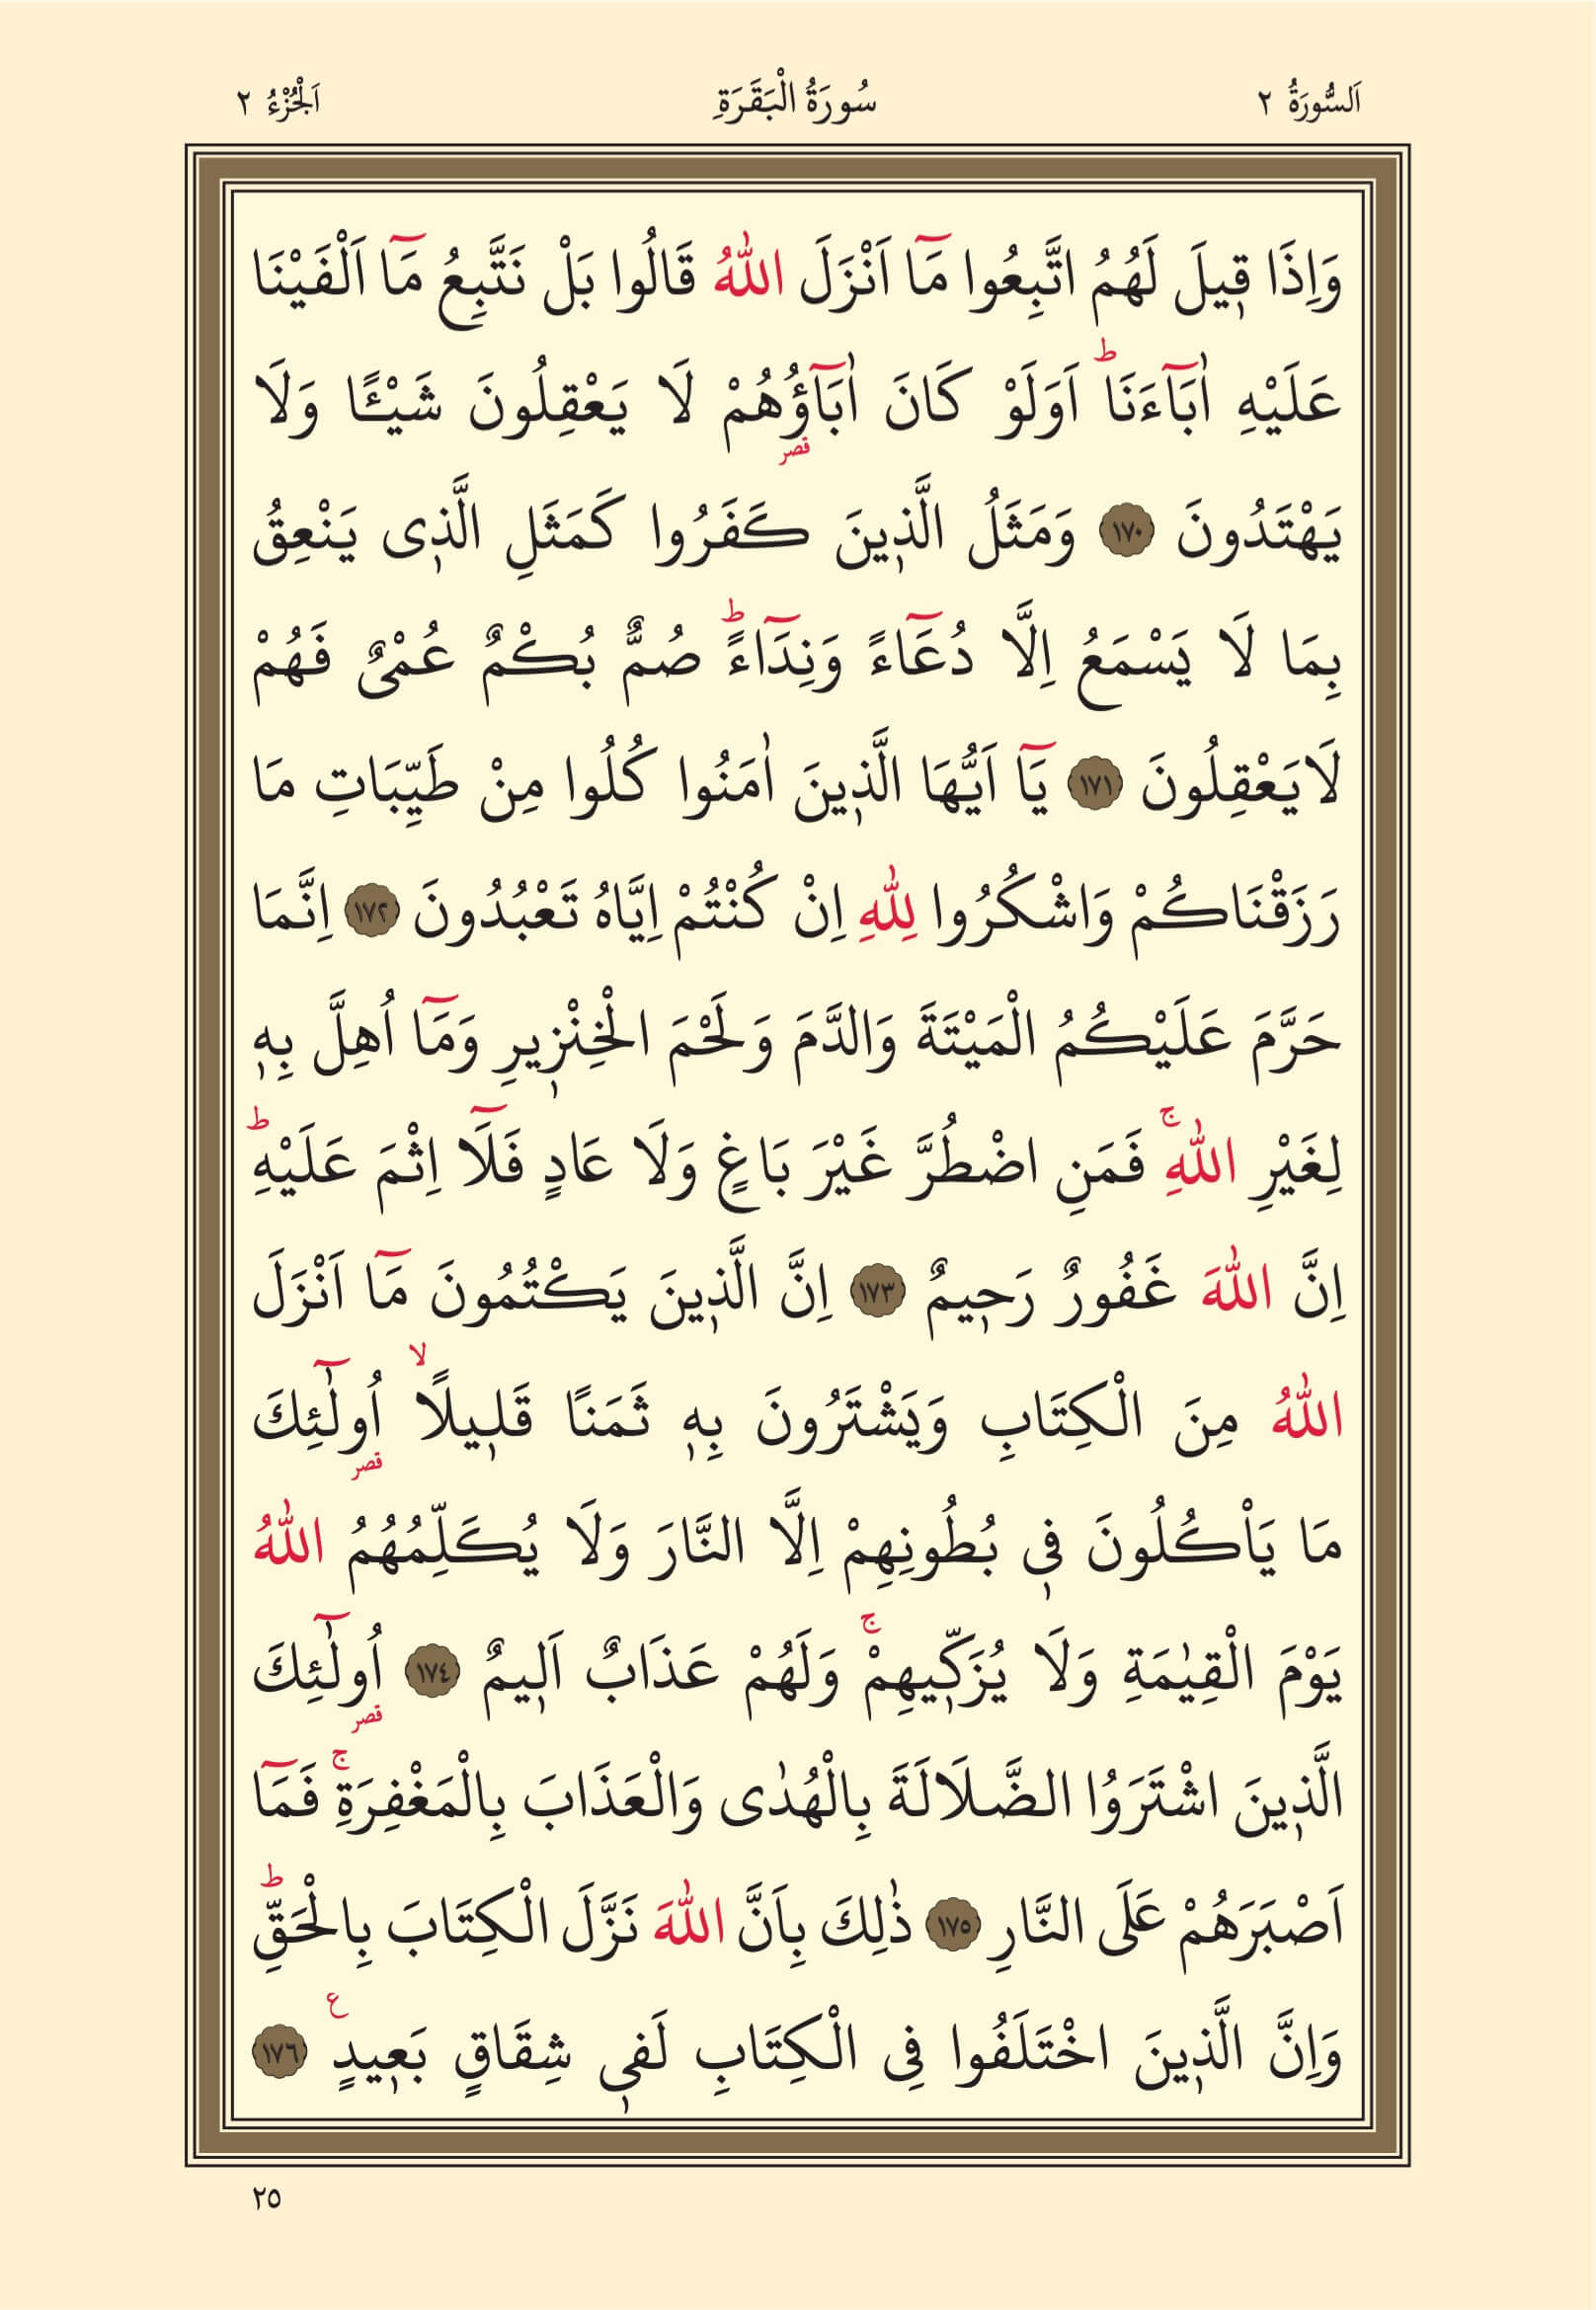 اَلسُّورَةُ ٢ سُورَةُ الْبَقَرَةِ اَلْجُزْءُ ٢
وَاِذَا قٖيلَ لَهُمُ اتَّبِعُوا مَٓا اَنْزَلَ اللّٰهُ قَالُوا بَلْ نَتَّبِعُ مَٓا اَلْفَيْنَا
عَلَيْهِ اٰبَٓاءَنَاؕ اَوَلَوْ كَانَ اٰبَٓاؤُ۬هُمْ لَا يَعْقِلُونَ شَيْـًٔا وَلَا
قصر
يَهْتَدُونَ ١٧٠ وَمَثَلُ الَّذٖينَ كَفَرُوا كَمَثَلِ الَّذٖى يَنْعِقُ
بِمَا لَا يَسْمَعُ اِلَّا دُعَٓاءً وَنِدَٓاءًؕ صُمٌّ بُكْمٌ عُمْىٌ فَهُمْ
لَايَعْقِلُونَ ١٧١ يَٓا اَيُّهَا الَّذٖينَ اٰمَنُوا كُلُوا مِنْ طَيِّبَاتِ مَا
رَزَقْنَاكُمْ وَاشْكُرُوا لِلّٰهِ اِنْ كُنْتُمْ اِيَّاهُ تَعْبُدُونَ ١٧٢ اِنَّمَا
حَرَّمَ عَلَيْكُمُ الْمَيْتَةَ وَالدَّمَ وَلَحْمَ الْخِنْزٖيرِ وَمَٓا اُهِلَّ بِهٖ
لِغَيْرِ اللّٰهِۚ فَمَنِ اضْطُرَّ غَيْرَ بَاغٍ وَلَا عَادٍ فَلَٓا اِثْمَ عَلَيْهِؕ
اِنَّ اللّٰهَ غَفُورٌ رَحٖيمٌ ١٧٣ اِنَّ الَّذٖينَ يَكْتُمُونَ مَٓا اَنْزَلَ
اللّٰهُ مِنَ الْكِتَابِ وَيَشْتَرُونَ بِهٖ ثَمَنًا قَلٖيلًاۙ اُولٰٓئِكَ
قصر
مَا يَاْكُلُونَ فٖى بُطُونِهِمْ اِلَّا النَّارَ وَلَا يُكَلِّمُهُمُ اللّٰهُ
يَوْمَ الْقِيٰمَةِ وَلَا يُزَكّٖيهِمْۚ وَلَهُمْ عَذَابٌ اَلٖيمٌ ١٧٤ اُولٰٓئِكَ
قصر
الَّذٖينَ اشْتَرَوُا الضَّلَالَةَ بِالْهُدٰى وَالْعَذَابَ بِالْمَغْفِرَةِۚ فَمَٓا
اَصْبَرَهُمْ عَلَى النَّارِ ١٧٥ ذٰلِكَ بِاَنَّ اللّٰهَ نَزَّلَ الْكِتَابَ بِالْحَقِّؕ
وَاِنَّ الَّذٖينَ اخْتَلَفُوا فِى الْكِتَابِ لَفٖى شِقَاقٍ بَعٖيدٍ ع ١٧٦
٢٥